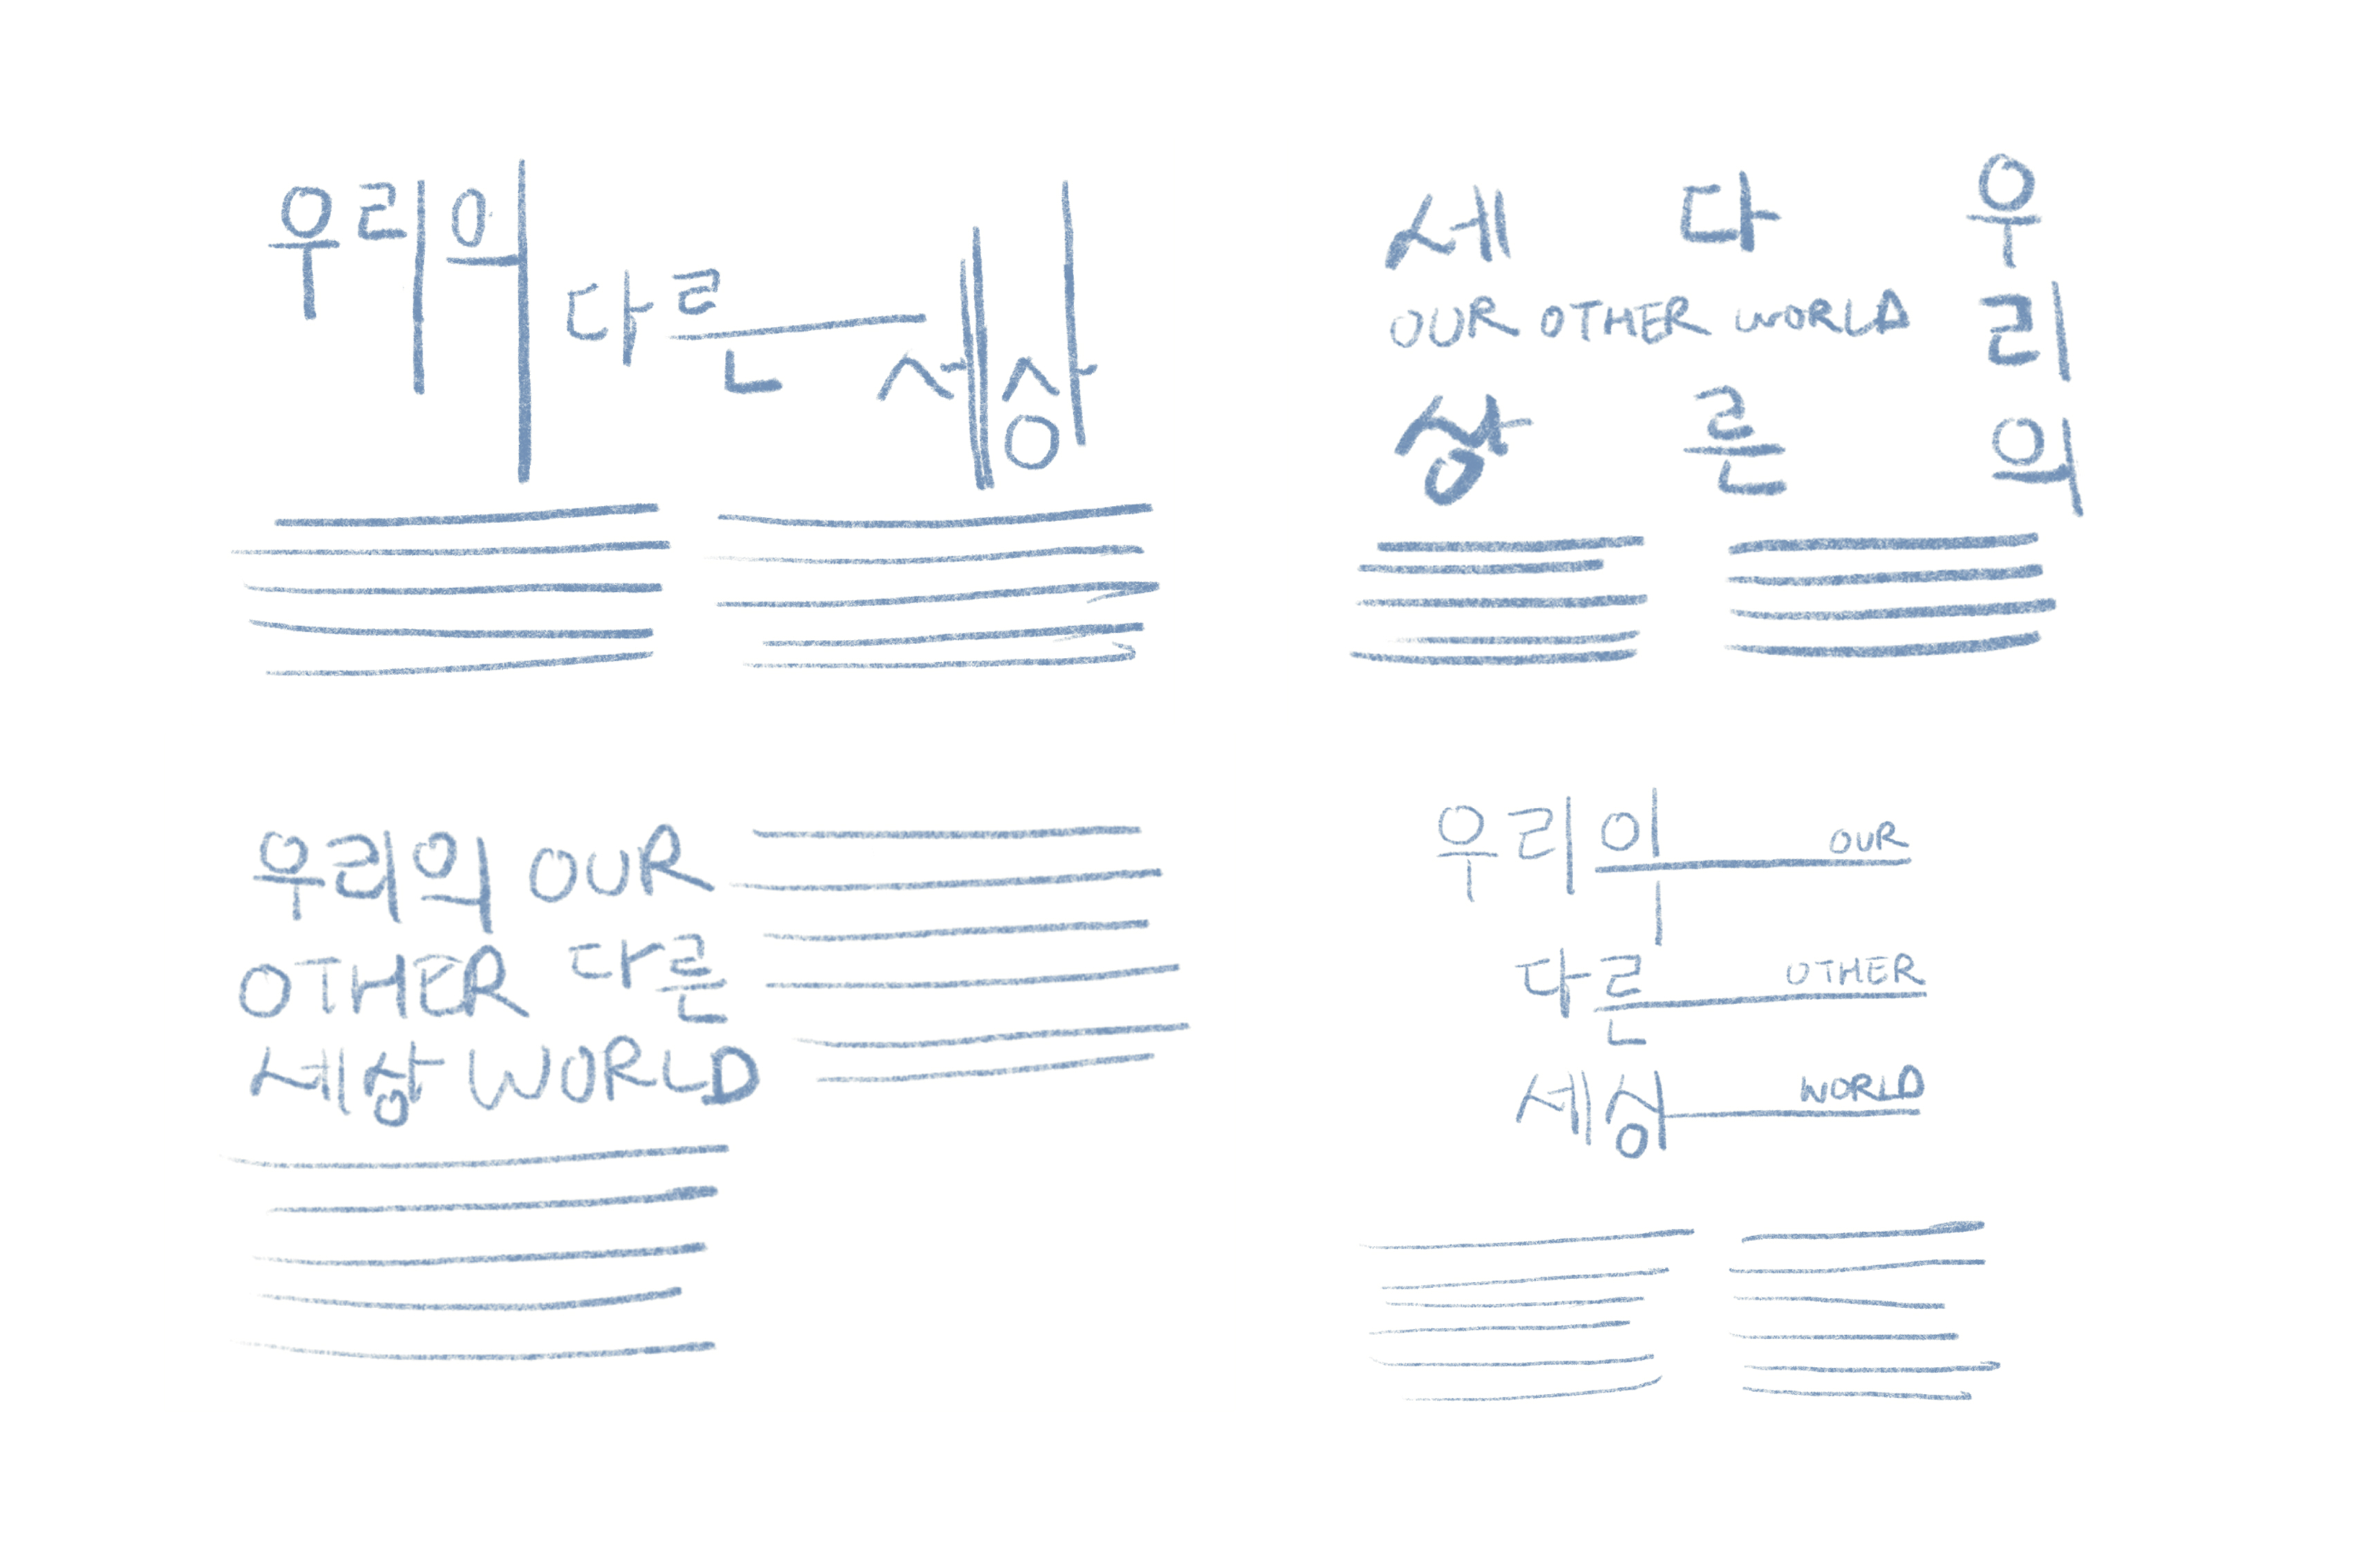 우리의 다른 세상
세 다 우
OUR OTHER WORLD 리
상 른 의
우리의 OUR
OTHER 다른
세상 WORLD
우리의 OUR
다른 OTHER
세상 WORLD